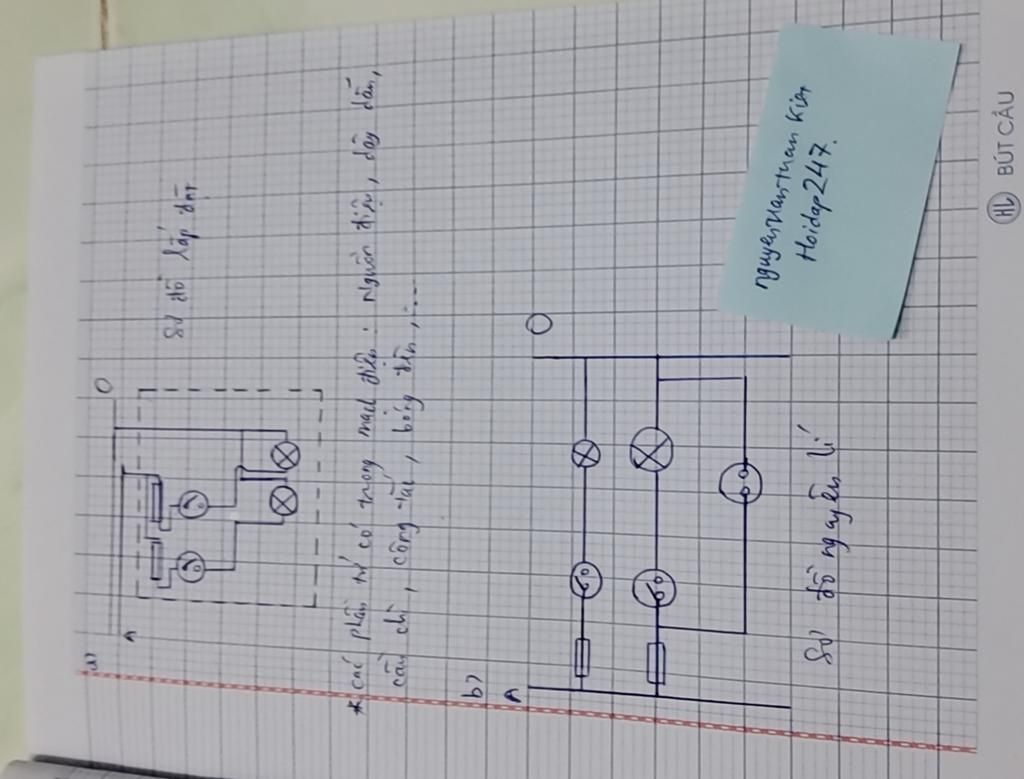 a)
A
O
Sơ đồ lắp đặt
* các phần tử có trong mạch điện: Nguồn điện, dây dẫn,
cầu chì, công tắc, bóng đèn,...
b)
A
O
Sơ đồ nguyên lí
Hoidap247.
HL BÚT CÂU